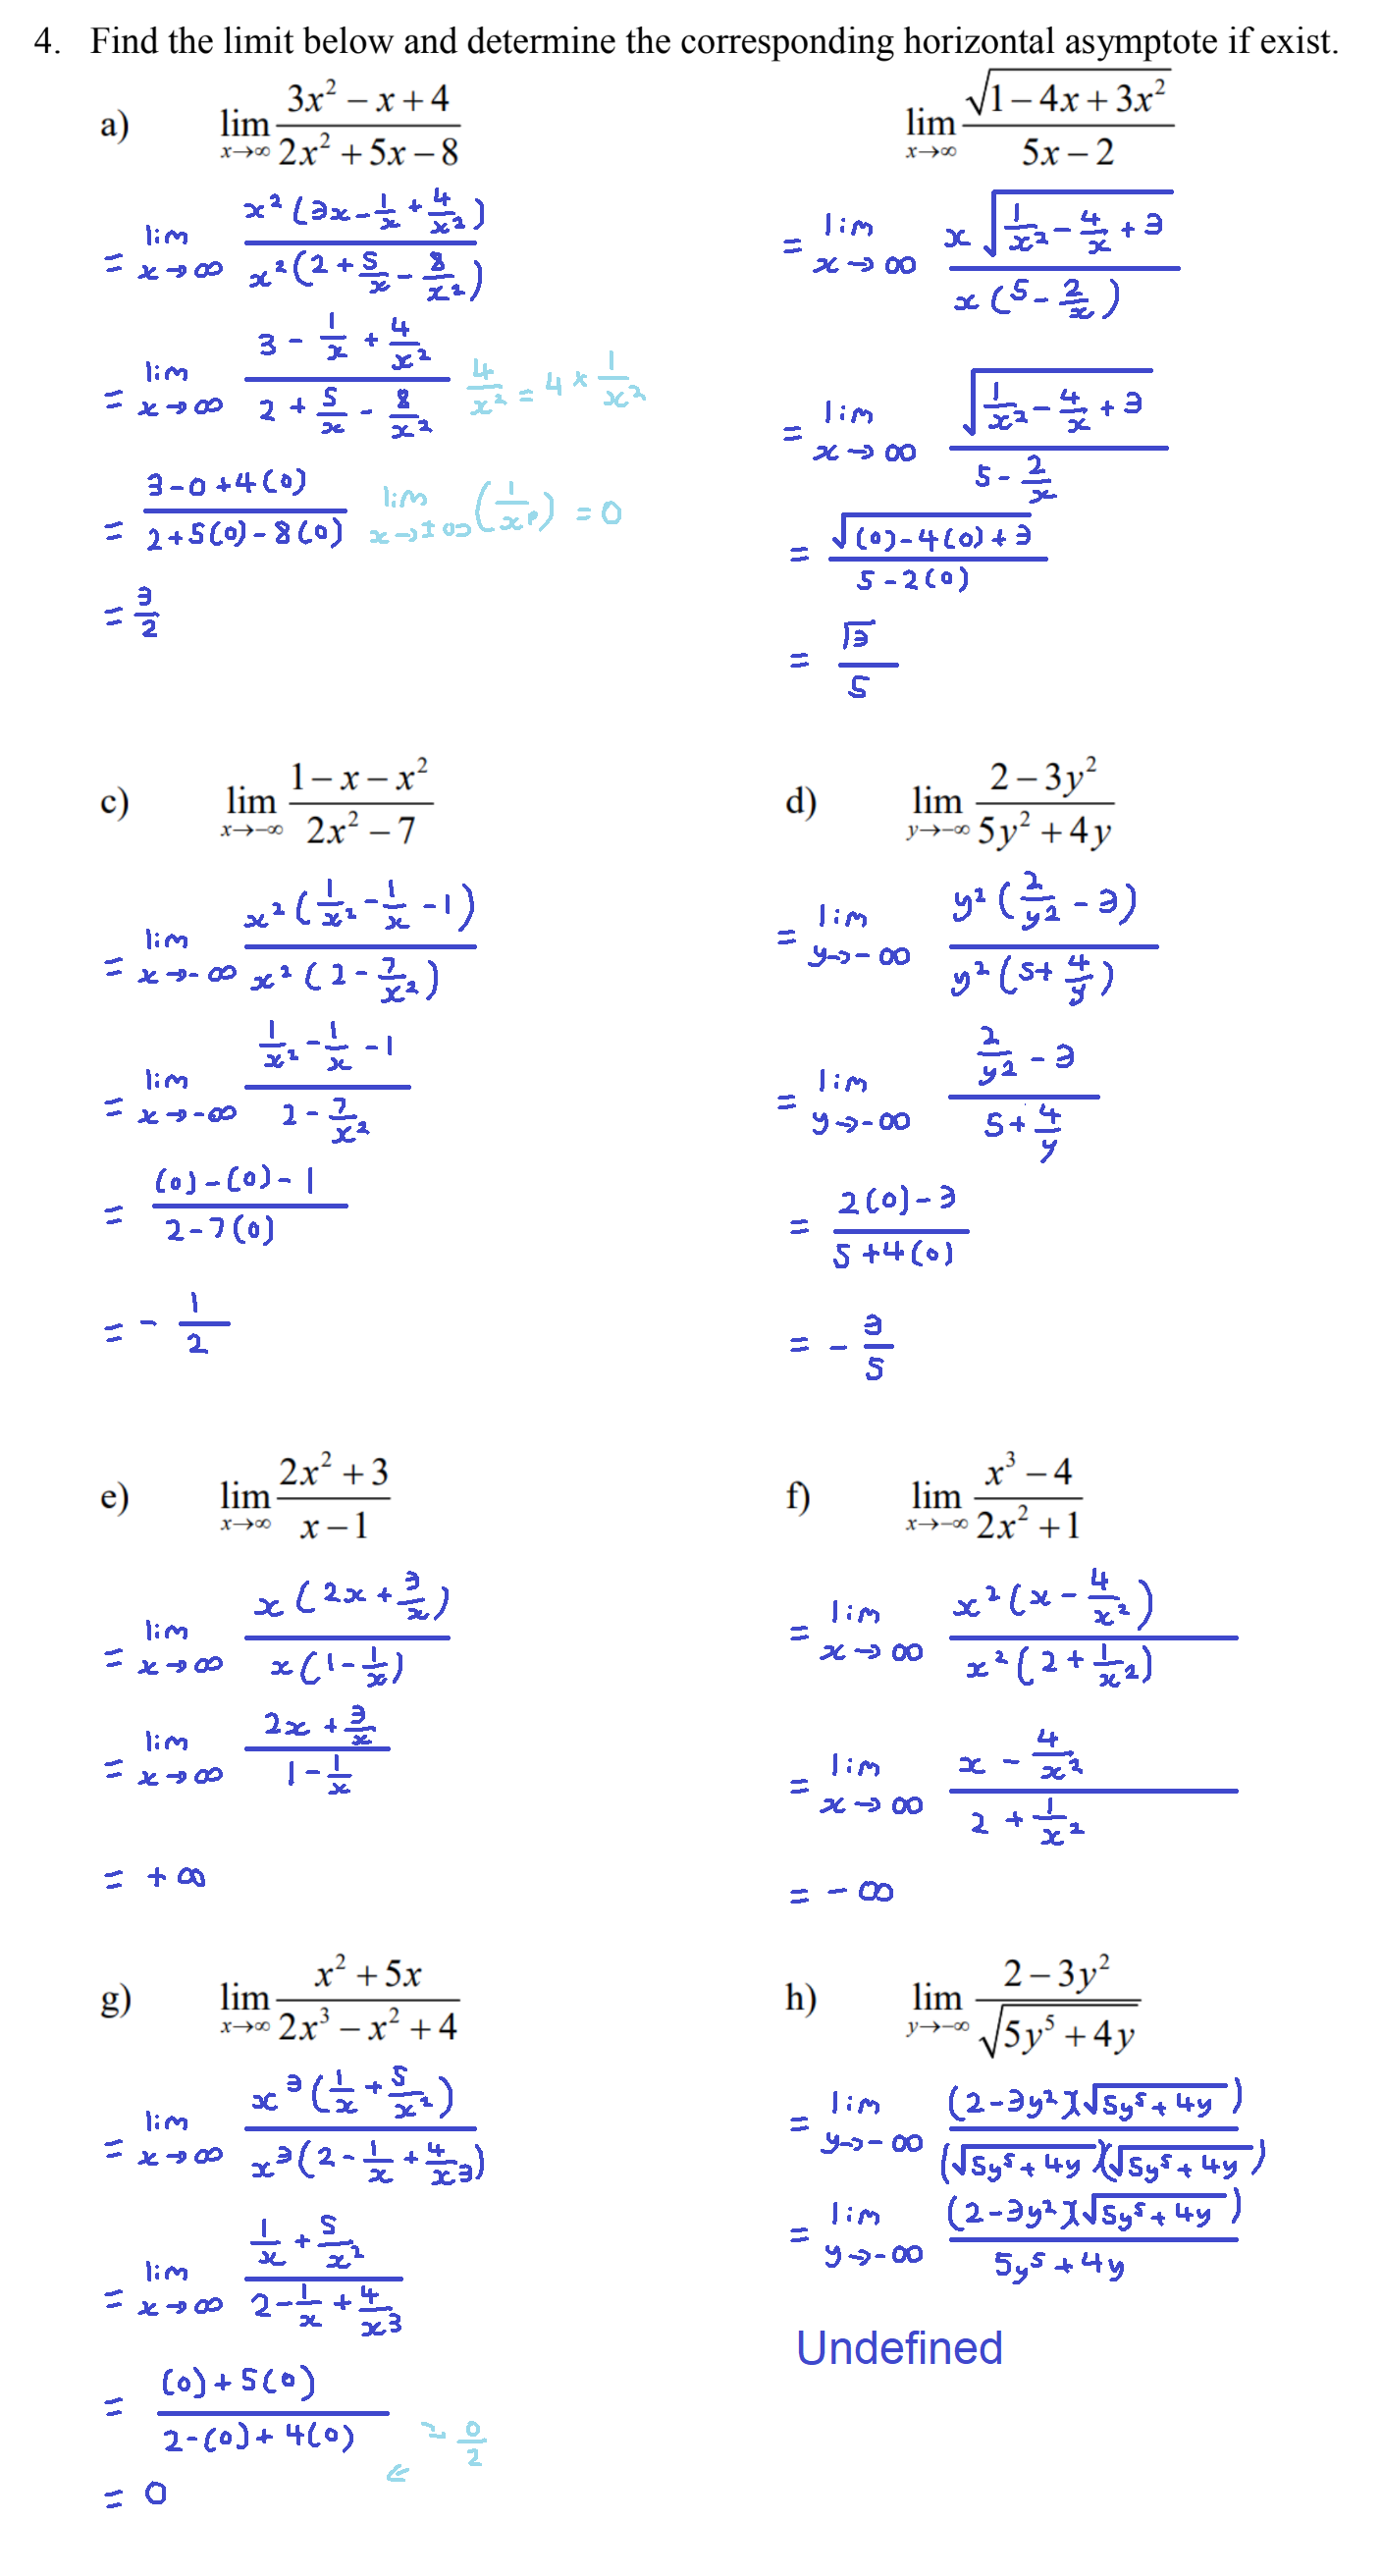 4. Find the limit below and determine the corresponding horizontal asymptote if exist.
a) lim x→∞ (3x² − x + 4)/(2x² + 5x − 8)
= lim x→∞ x²(3x − 1/x + 4/x²)/x²(2 + 5/x − 8/x²)
= lim x→∞ (3 − 1/x + 4/x²)/(2 + 5/x − 8/x²) 4/x² = 4 × 1/x²
= (3 − 0 + 4(0))/(2 + 5(0) − 8(0)) lim x→±∞ (1/xᵖ) = 0
= 3/2
lim x→∞ √(1 − 4x + 3x²)/(5x − 2)
= lim x→∞ x√(1/x² − 4/x + 3)/x(5 − 2/x)
= lim x→∞ √(1/x² − 4/x + 3)/(5 − 2/x)
= √((0) − 4(0) + 3)/(5 − 2(0))
= √3/5
c) lim x→−∞ (1 − x − x²)/(2x² − 7)
= lim x→−∞ x²(1/x² − 1/x − 1)/x²(2 − 7/x²)
= lim x→−∞ (1/x² − 1/x − 1)/(2 − 7/x²)
= ((0) − (0) − 1)/(2 − 7(0))
= − 1/2
d) lim y→−∞ (2 − 3y²)/(5y² + 4y)
= lim y→−∞ y²(2/y² − 3)/y²(5 + 4/y)
= lim y→−∞ (2/y² − 3)/(5 + 4/y)
= (2(0) − 3)/(5 + 4(0))
= − 3/5
e) lim x→∞ (2x² + 3)/(x − 1)
= lim x→∞ x(2x + 3/x)/x(1 − 1/x)
= lim x→∞ (2x + 3/x)/(1 − 1/x)
= + ∞
f) lim x→−∞ (x³ − 4)/(2x² + 1)
= lim x→∞ x²(x − 4/x²)/x²(2 + 1/x²)
= lim x→∞ (x − 4/x²)/(2 + 1/x²)
= − ∞
g) lim x→∞ (x² + 5x)/(2x³ − x² + 4)
= lim x→∞ x³(1/x + 5/x²)/x³(2 − 1/x + 4/x³)
= lim x→∞ (1/x + 5/x²)/(2 − 1/x + 4/x³)
= ((0) + 5(0))/(2 − (0) + 4(0)) = 0/2
⇐
= 0
h) lim y→−∞ (2 − 3y²)/√(5y⁵ + 4y)
= lim y→−∞ (2 − 3y²)(√(5y⁵ + 4y))/(√(5y⁵ + 4y))(√(5y⁵ + 4y))
= lim y→−∞ (2 − 3y²)(√(5y⁵ + 4y))/(5y⁵ + 4y)
Undefined